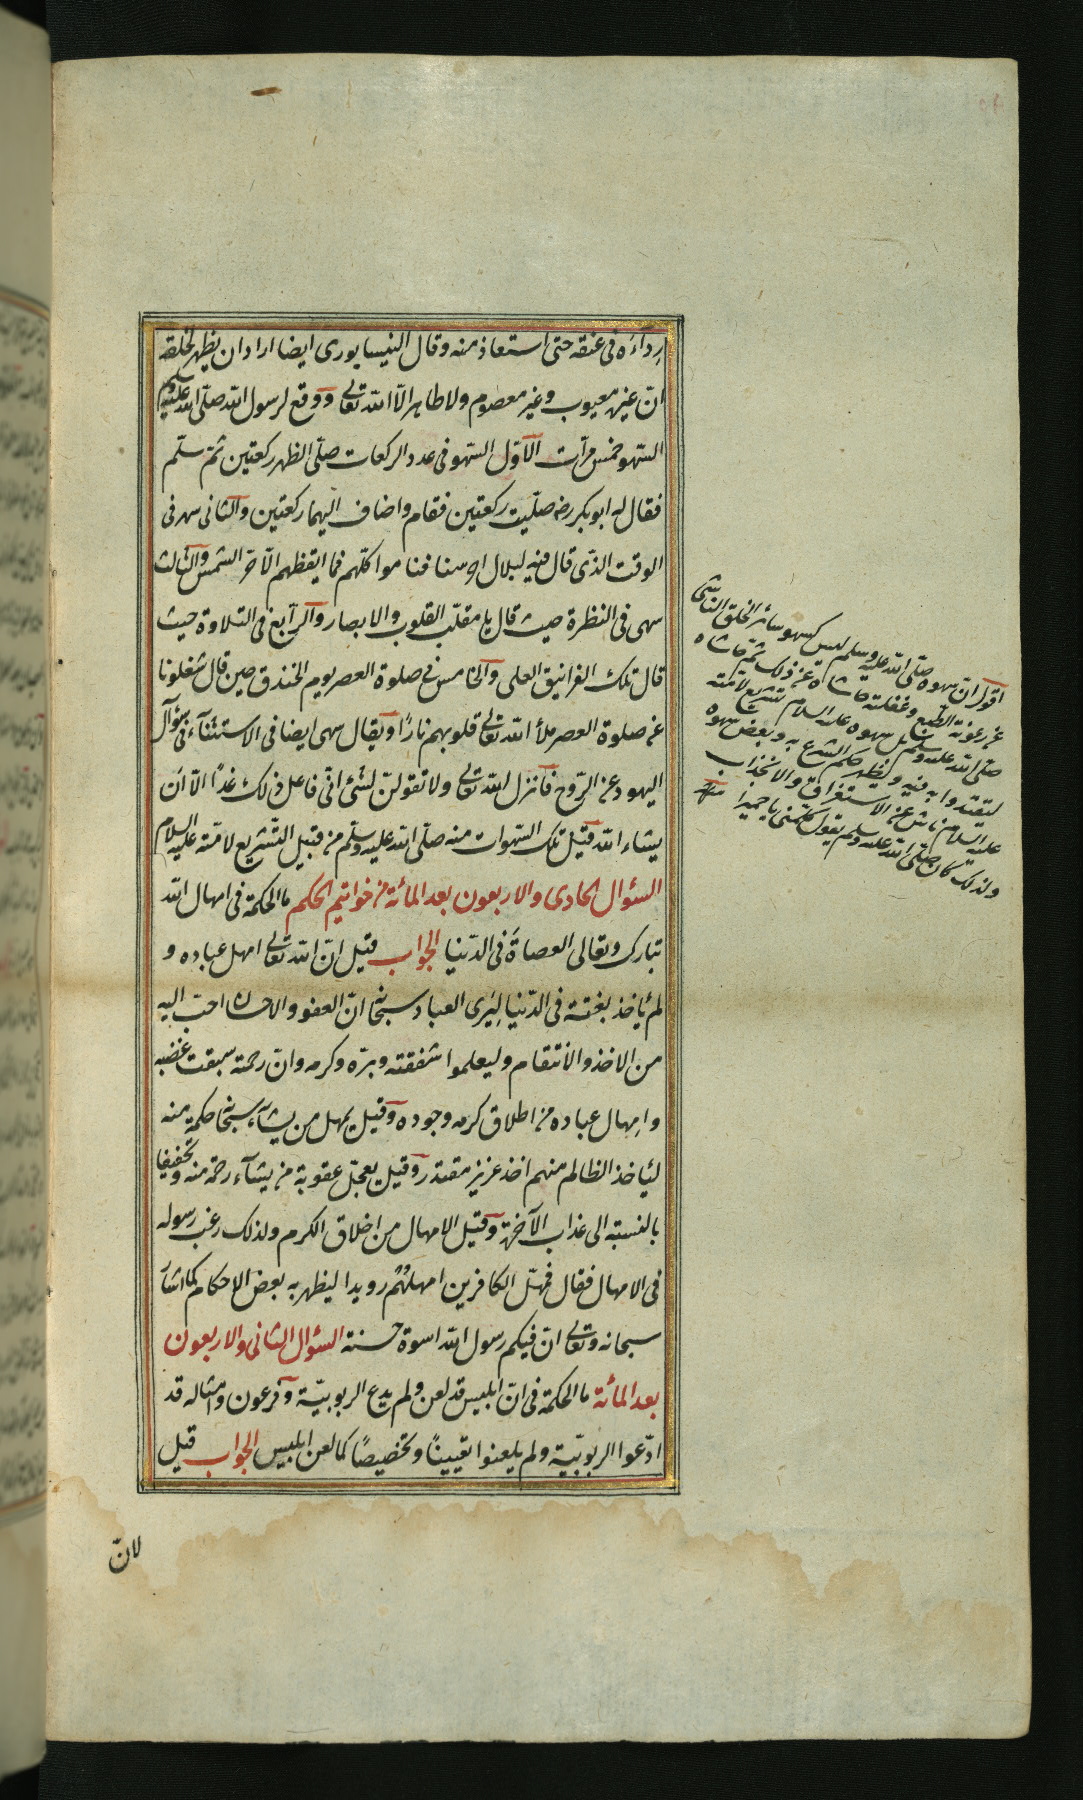 رداءه فى عنقه حتى استعاذ منه وقال النيسابورى ايضا اراد ان يظهر لخلقه
انّ غيره معيوب وغير معصوم ولا طاهر الّا الله تعالى ووقع لرسول الله صلّى الله عليه وسلم
السّهو خمس مرّات الاوّل السّهو فى عدد الركعات صلّى الظهر ركعتين ثمّ سلّم
فقال له ابو بكر رضه صلّيت ركعتين فقام واضاف اليهما ركعتين والثانى سهر فى
الوقت الذى قال فيه لبلال احرسنا فناموا كلّهم فما ايقظهم الّا حرّ الشمس والثالث
سهى فى النظرة حيث قال يا مقلّب القلوب والابصار والرّابع فى التلاوة حيث
قال تلك الغرانيق العلى والخامس فى صلوة العصر يوم الخندق حين قال شغلونا
عن صلوة العصر ملأ الله تعالى قلوبهم نارًا ويقال سهى ايضا فى الاستثناء فى سؤال
اليهود عن الرّوح فانزل الله تعالى ولا تقولنّ لشئ انّى فاعل ذلك غدًا الّا ان
يشاء الله قيل تلك السّهوات منه صلّى الله عليه وسلّم من قبيل التّشريع لامّته عليه السلام
السّؤال الحادى والاربعون بعد المائة من خواتيم الحكم ما الحكمة فى امهال الله
تبارك وتعالى العصاة فى الدّنيا الجواب قيل انّ الله تعالى امهل عباده و
لم يأخذ بغتة فى الدّنيا ليرى العباد سبحانه انّ العفو والاحسان احبّ اليه
من الاخذ والانتقام وليعلموا شفقته وبرّه وكرمه وانّ رحمته سبقت غضبه
وامهال عباده من اطلاق كرمه وجوده وقيل يمهل من يشاء سبحانه حكمة منه
ليأخذ الظالم منهم اخذ عزيز مقتدر وقيل يعجّل عقوبة من يشاء رحمة منه وتخفيفا
بالنسبة الى عذاب الآخرة وقيل الامهال من اخلاق الكرم ولذلك رغب رسوله
فى الامهال فقال فمهّل الكافرين امهلهم رويدا ليظهر به بعض الاحكام كما اشار
سبحانه وتعالى انّ فيكم رسول الله اسوة حسنة السّؤال الثانى والاربعون
بعد المائة ما الحكمة فى انّ ابليس قد لعن ولم يدع الربوبيّة وفرعون وامثاله قد
ادّعوا الربوبيّة ولم يلعنوا تعيينًا وتخصيصًا كما لعن ابليس الجواب قيل
لانّ
اقول انّ سهوه صلّى الله عليه وسلم ليس كسهو سائر الخلق الناشى
عن رعونة الطّبع وغفلته حاشاه عن ذلك ثمّ حاشاه
صلّى الله عليه وسلم بل سهوه عليه السلام تشريع لامّته
ليقتدوا به فيه وليظهر حكم الشرع به وبعض سهوه
عليه السلام ناش عن الاستغراق والانجذاب
ولذلك كان صلّى الله عليه وسلم يقول كلّمينى يا حميرا